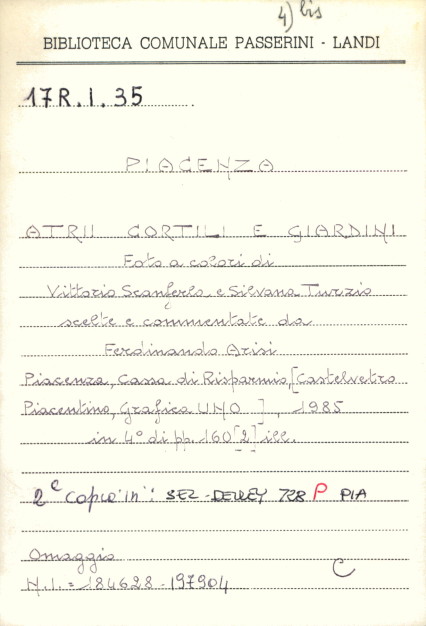 4) bis
BIBLIOTECA COMUNALE PASSERINI - LANDI
17R.I.35
PIACENZA
ATRII CORTILI E GIARDINI
Foto a colori di
Vittorio Scanferla e Silvana Turzio
scelte e commentate da
Ferdinando Arisi
Piacenza, Cassa di Risparmio, [Castelvetro
Piacentino, Grafica UNO ], 1985
in 4° di pp. 160 [2] ill.
2ª copia in: SEZ-DEWEY 728 P PIA
Omaggio
N.I. = 184628 - 197904
C